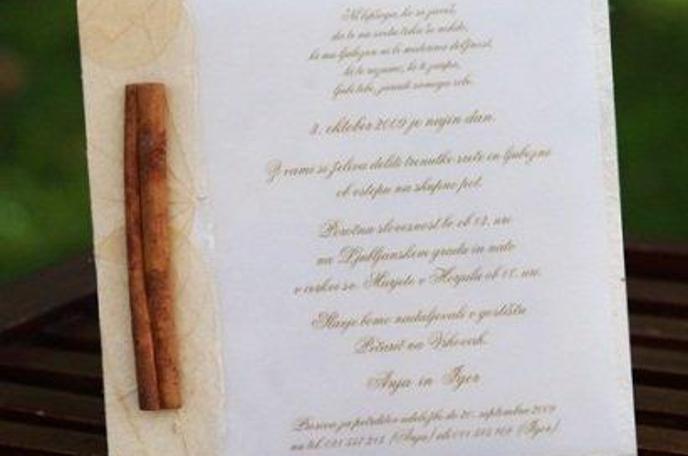 Ni lepšega, ko se zaveš,
da te na svetu čaka še nekdo,
ki mu ljubezen ni le
ki te razume, ki te
ljubi tebe, samega sebe.
3. oktober 2009 je najin dan.
Z vami si želiva deliti trenutke sreče in ljubezni
ob vstopu na skupno pot.
Poročna slovesnost bo ob 12. uri
na Ljubljanskem gradu in nato
v cerkvi sv. Marjete v Horjulu ob
Slavje bomo nadaljevali v gostišču
na Vrhovcih.
Anja in Igor
Prosiva za potrditev udeležbe do 20. septembra 2009
na tel. (Anja) ali (Igor)